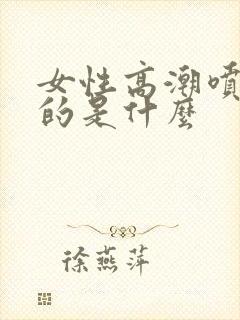 女性高潮噴
的是什麼
徐燕萍